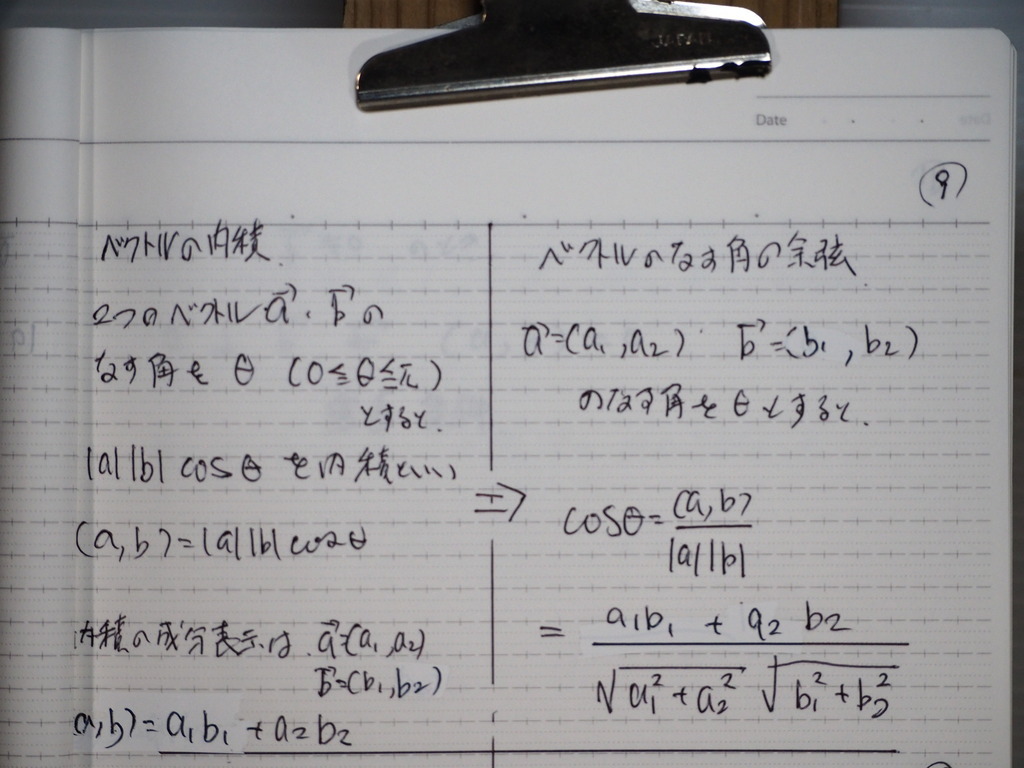 JAPAN
Date
⑨
ベクトルの内積
2つのベクトル a→, b→ の
なす角を θ (0≦θ≦π)
とすると,
|a||b| cosθ を内積といい
(a,b)=|a||b|cosθ
内積の成分表示は a→=(a₁,a₂)
b→=(b₁,b₂)
(a,b)=a₁b₁+a₂b₂
⇒
ベクトルのなす角の余弦
a→=(a₁,a₂) b→=(b₁,b₂)
のなす角をθとすると,
cosθ=(a,b)/|a||b|
= a₁b₁ + a₂b₂ / √a₁²+a₂² √b₁²+b₂²